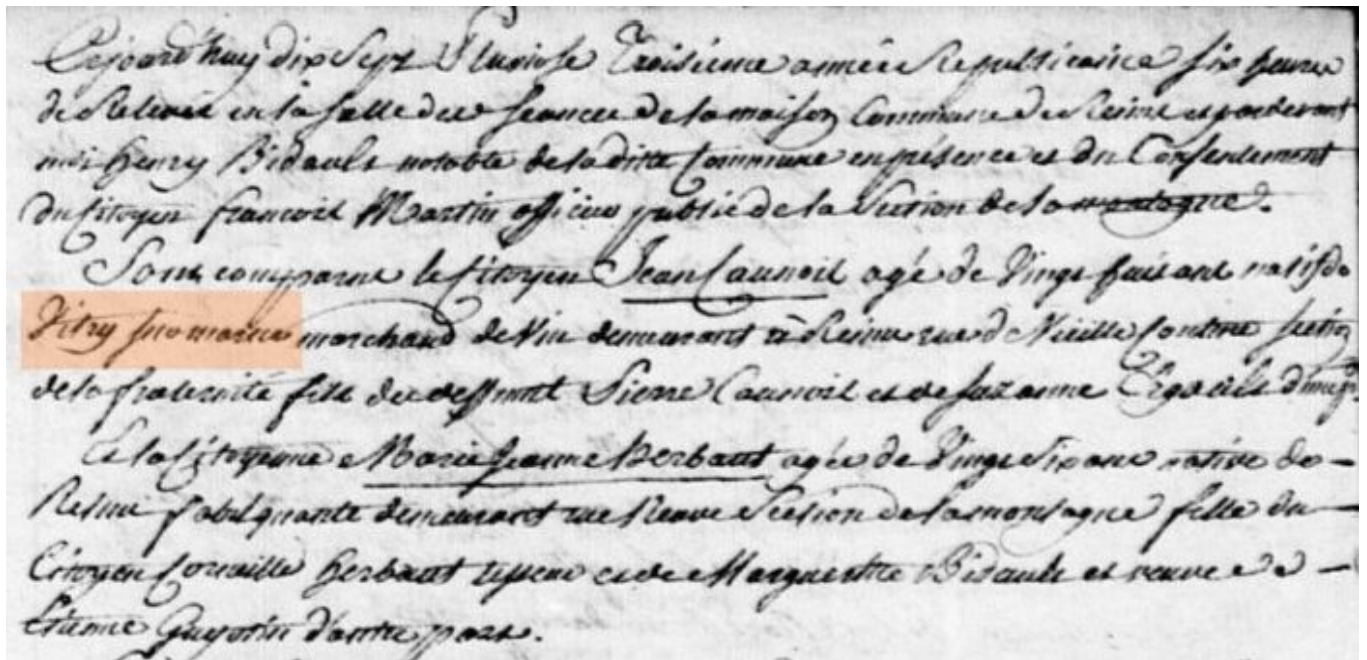 Cejourd'huy dix Sept Pluviose Troisieme année Republicaine six heures
de Relevée en la Salle des Seances de la maison Commune de Reims et pardevant
moi henry Bidault notable de la ditte Commune en présence et du Consentement
du Citoyen francois Martin officier public de la Section de la montagne.
Sont comparus le Citoyen Jean Caunois agé de Vingt huit ans natif de
Vitry sur marne marchand de Vin demeurant à Reims rue de Vieille Couture Section
de la fraternité fils de deffunt Pierre Caunois et de Suzanne d'une p.
Et la Citoyenne Marie Jeanne Herbaut agée de Vingt Six ans native de
Reims fabriquante demeurant rue Neuve Section de la montagne fille du
Citoyen Corneille herbaut et de Marguerite Bidault et veuve de
Etienne Guyotin d'autre part.